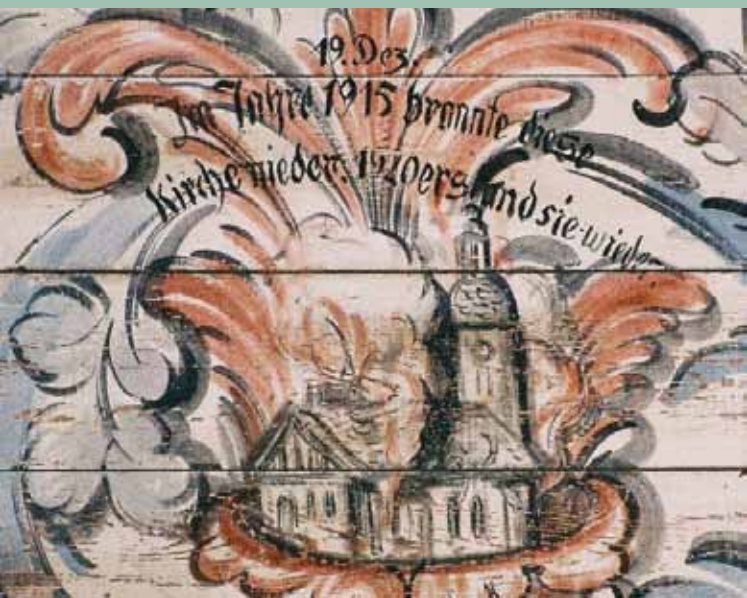 19. Dez.
Im Jahre 1915 brannte diese
Kirche nieder. 1920 erstand sie wieder